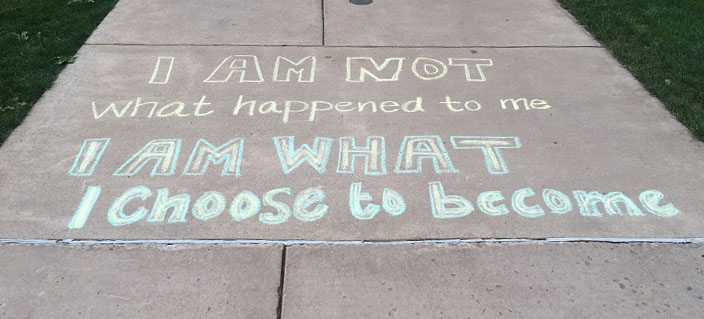 I AM NOT
What happened to me
I AM WHAT
I Choose to become